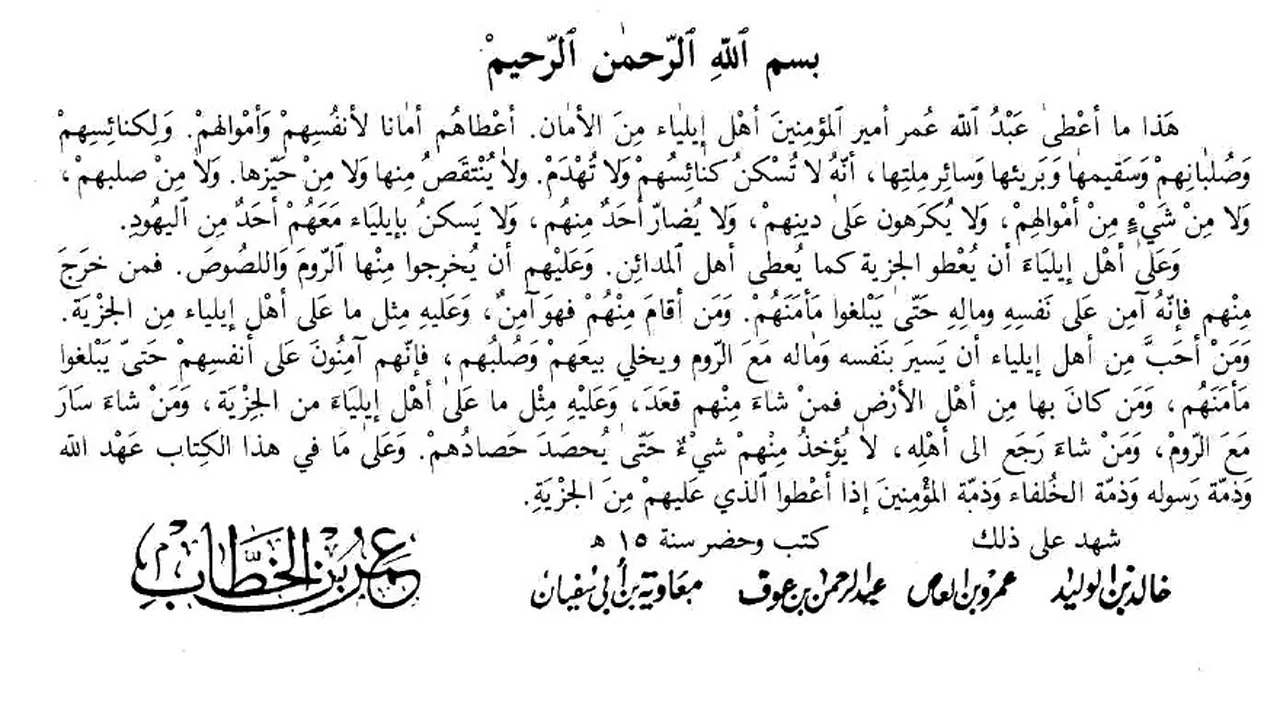 بسم ٱللّٰهِ ٱلرّحمٰن ٱلرّحيمْ
هَذا ما أعْطىٰ عَبْدُ ٱللّٰه عُمر أمير ٱلمؤمِنِينَ أهْل إيليَاء مِنَ الأمٰان. أعْطاهُم أمٰانا لأنفُسِهِمْ وَأمْوالهِمْ. وَلِكنائِسِهِمْ
وَصُلبٰانِهِمْ وَسَقيمهٰا وَبَريئها وَسائِر مِلتِها، أنّهُ لا تُسْكنُ كنائِسُهمْ وَلا تُهْدَمْ. ولاٰ يُنْتقَصُ مِنها وَلا مِنْ حَيّزِها. وَلاٰ مِنْ صلبهمْ،
وَلا مِنْ شَيْءٍ مِنْ أمْوالهِمْ، وَلا يُكرَهون عَلىٰ دينِهمْ، وَلا يُضارّ أحَدٌ منِهُم، وَلا يَسكنُ بإيليَاء مَعَهُمْ أحَدٌ مِن ٱليهُودِ.
وَعَلىٰ أهْل إيليَاءَ أن يُعْطو الجزية كما يُعطى أهل ٱلمدائِن. وَعَليْهم أن يُخرِجوا مِنْها ٱلرّومَ وَاللصُوصَ. فمن خرَجَ
مِنْهم فإنّهُ آمِن عَلى نَفسِهِ ومالِهِ حَتّىٰ يَبْلغوا مَأمَنَهُمْ. وَمَن أقامَ مِنْهُمْ فهوَ آمِنٌ، وَعَليهِ مِثل ما عَلى أهْل إيلياء مِن الجزْيَة.
وَمَنْ أحَبَّ مِن أهل إيلياء أن يَسيرَ بنَفسه وَماله مَعَ الرّوم ويخلي بيعَهمْ وَصُلبُهم، فإنّهم آمِنُونَ عَلى أنفسِهِمْ حَتىّ يَبْلغوا
مَأمَنَهُم، وَمَن كانَ بها مِن أهْل الأرْض فمنْ شاءَ مِنْهم قعَدَ، وَعَليْهِ مِثْل ما عَلىٰ أهْل إيليَاءَ من الجِزْيَة، وَمَنْ شاءَ سَارَ
مَعَ الرّومْ، وَمَنْ شاءَ رَجَع الى أهْلِه، لاٰ يُؤخذُ مِنْهمْ شيْءٌ حَتّىٰ يُحصَدَ حَصادُهمْ. وَعَلى مَا في هذا الكِتاب عَهْد الله
وَذمّة رَسوله وَذمّة الخُلفاء وَذمّة المؤْمِنِينَ إذا أعْطوا ٱلذي عَليهمْ مِنَ الجزْيَةِ.
شهد على ذلك كتب وحضر سنة ١٥ ه
خالد بن الوليد عمرو بن العاص عبد الرحمن بن عوف معاوية بن أبي سفيان عمر بن الخطاب